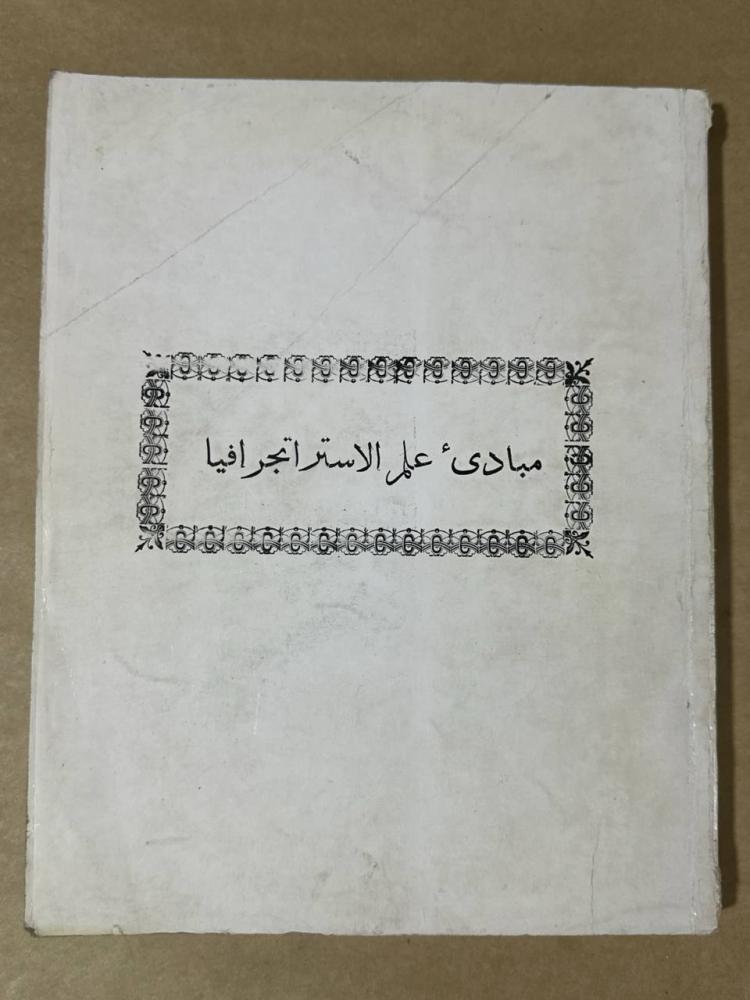 مبادئ علم الاستراتجرافيا